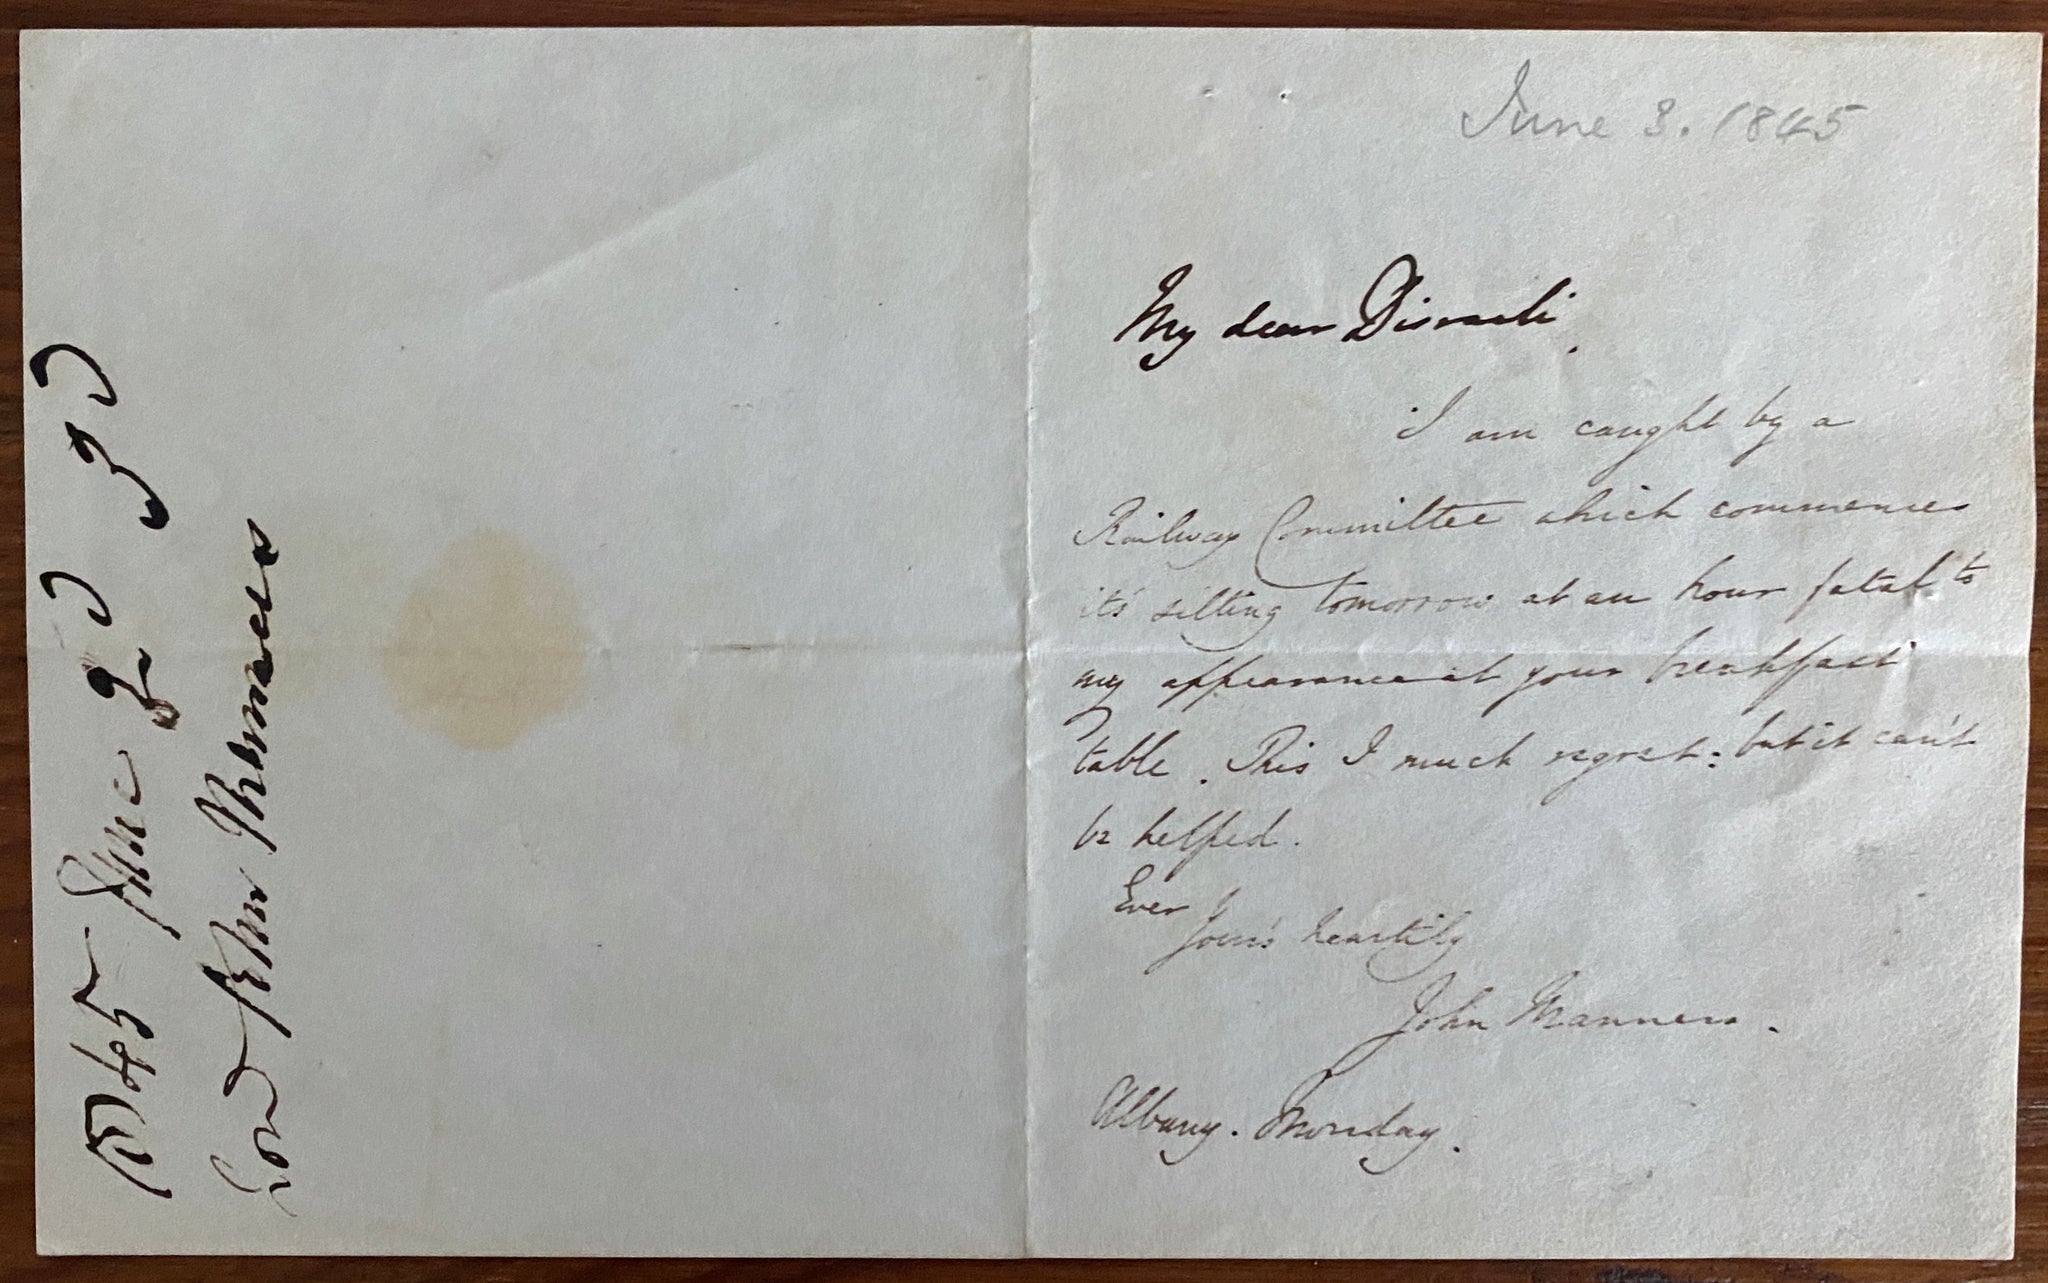 June 3. 1845
My dear Disraeli.
I am caught by a
Railway Committee which commences
it's sitting tomorrow at an hour fatal to
my appearance at your breakfast
table. This I much regret: but it can't
be helped.
Ever
Your's heartily
John Manners.
Albany. Monday.
1845 June
Lord John Manners